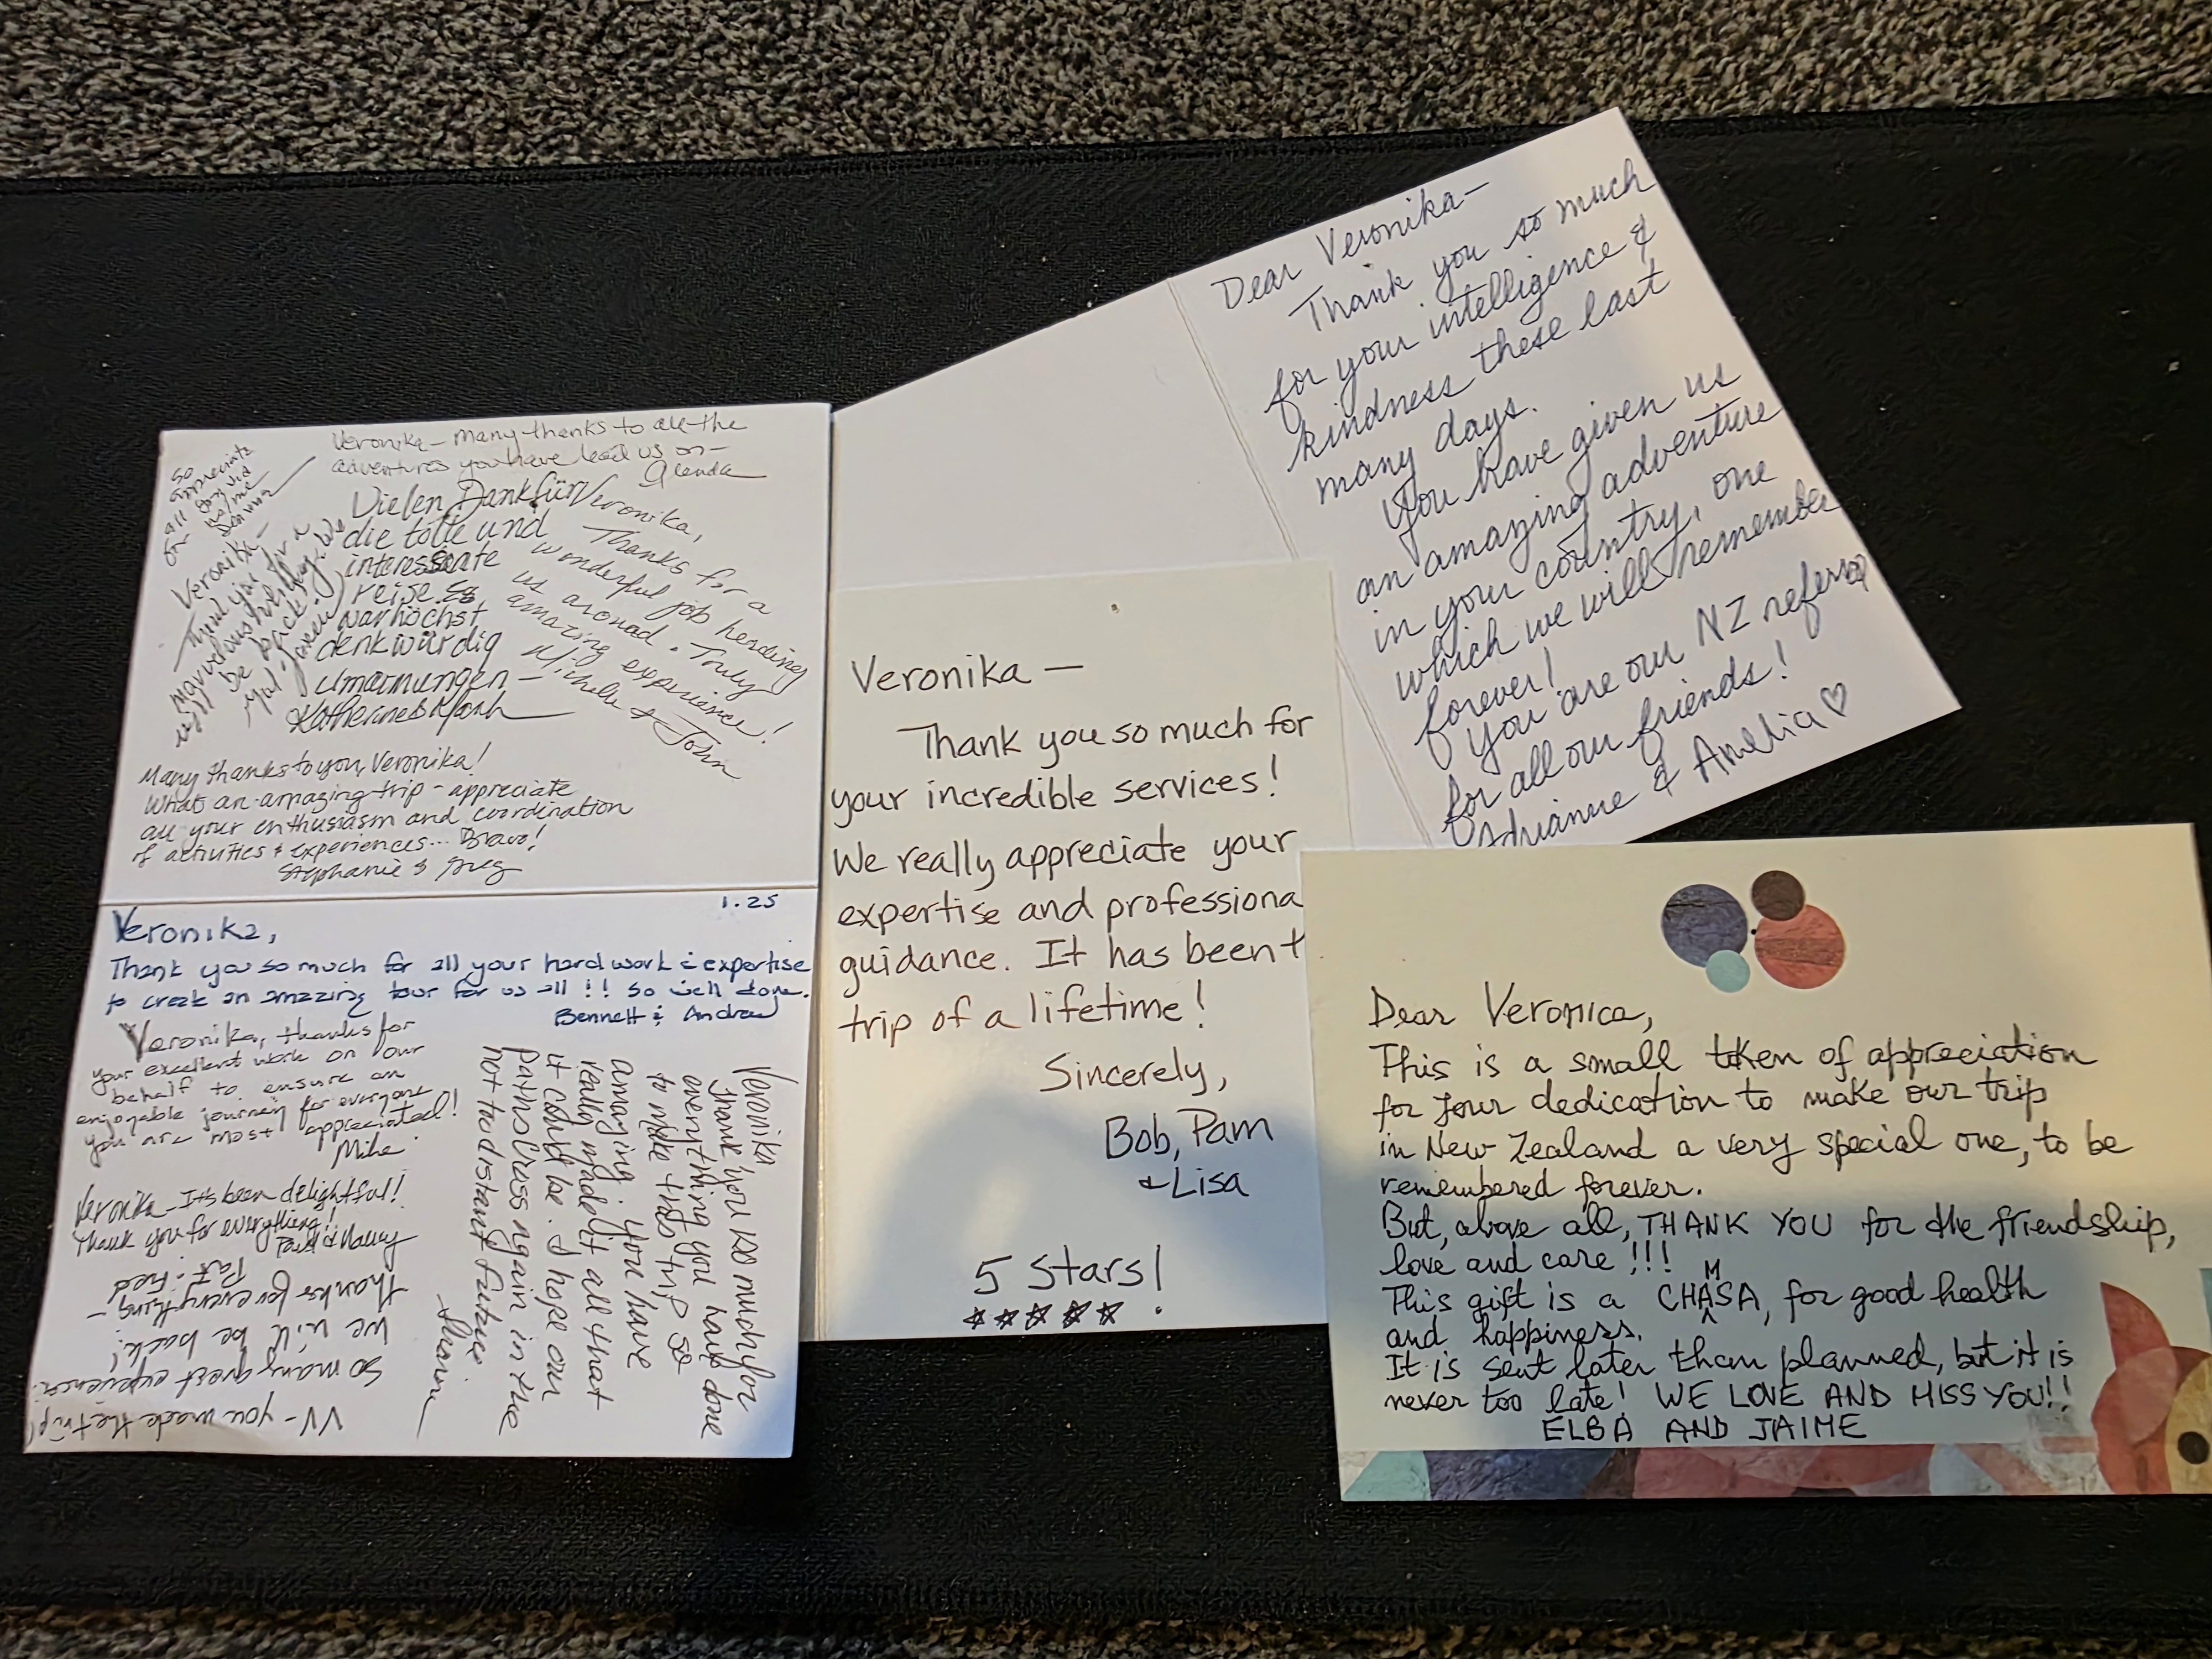 Veronika – many thanks to all the
adventures you have lead us on –
Glenda
so
appreciate
all you did
for
Veronika –
Thank you for a
marvelous
will be back!
Vielen Dank für
die tolle und
interessante
reise. Es
war höchst
denkwürdig
Umarmungen –
Veronika,
Thanks for a
wonderful job herding
us around. Truly
amazing experience!
Michele & John
Many thanks to you, Veronika!
What an amazing trip – appreciate
all your enthusiasm and coordination
of activities & experiences... Bravo!
Stephanie & Greg
1.25
Veronika,
Thank you so much for all your hard work & expertise
to create an amazing tour for us all!! So well done.
Bennett & Andrew
Veronika, thanks for
your excellent work on our
behalf to ensure an
enjoyable journey for everyone
you are most appreciated!
Mike
Veronika – It's been delightful!
Thank you for everything!
Paul & Nancy
VV – you made the trip!
so many great experiences.
We will be back!
Thanks for everything –
Pat & Fred
Veronika,
Thank you so much for
everything you have done
to make this trip so
amazing. You have
really made it all that
it could be. I hope our
paths cross again in the
not too distant future
– Sharon
Veronika —
Thank you so much for
your incredible services!
We really appreciate your
expertise and professiona
guidance. It has been t
trip of a lifetime!
Sincerely,
Bob, Pam
& Lisa
5 Stars!
☆☆☆☆☆!
Dear Veronika –
Thank you so much
for your intelligence &
kindness these last
many days.
You have given us
an amazing adventure
in your country, one
which we will remember
forever!
You are our NZ referral
for all our friends!
Adrianne & Amelia ♡
Dear Veronica,
This is a small token of appreciation
for your dedication to make our trip
in New Zealand a very special one, to be
remembered forever.
But, above all, THANK YOU for the friendship,
love and care!!!
This gift is a CHAMSA, for good health
and happiness.
It is sent later than planned, but it is
never too late! WE LOVE AND MISS YOU!!
ELBA AND JAIME